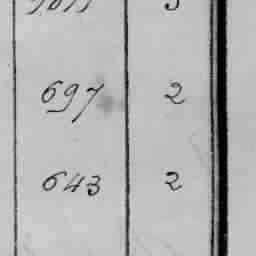 697 2
643 2